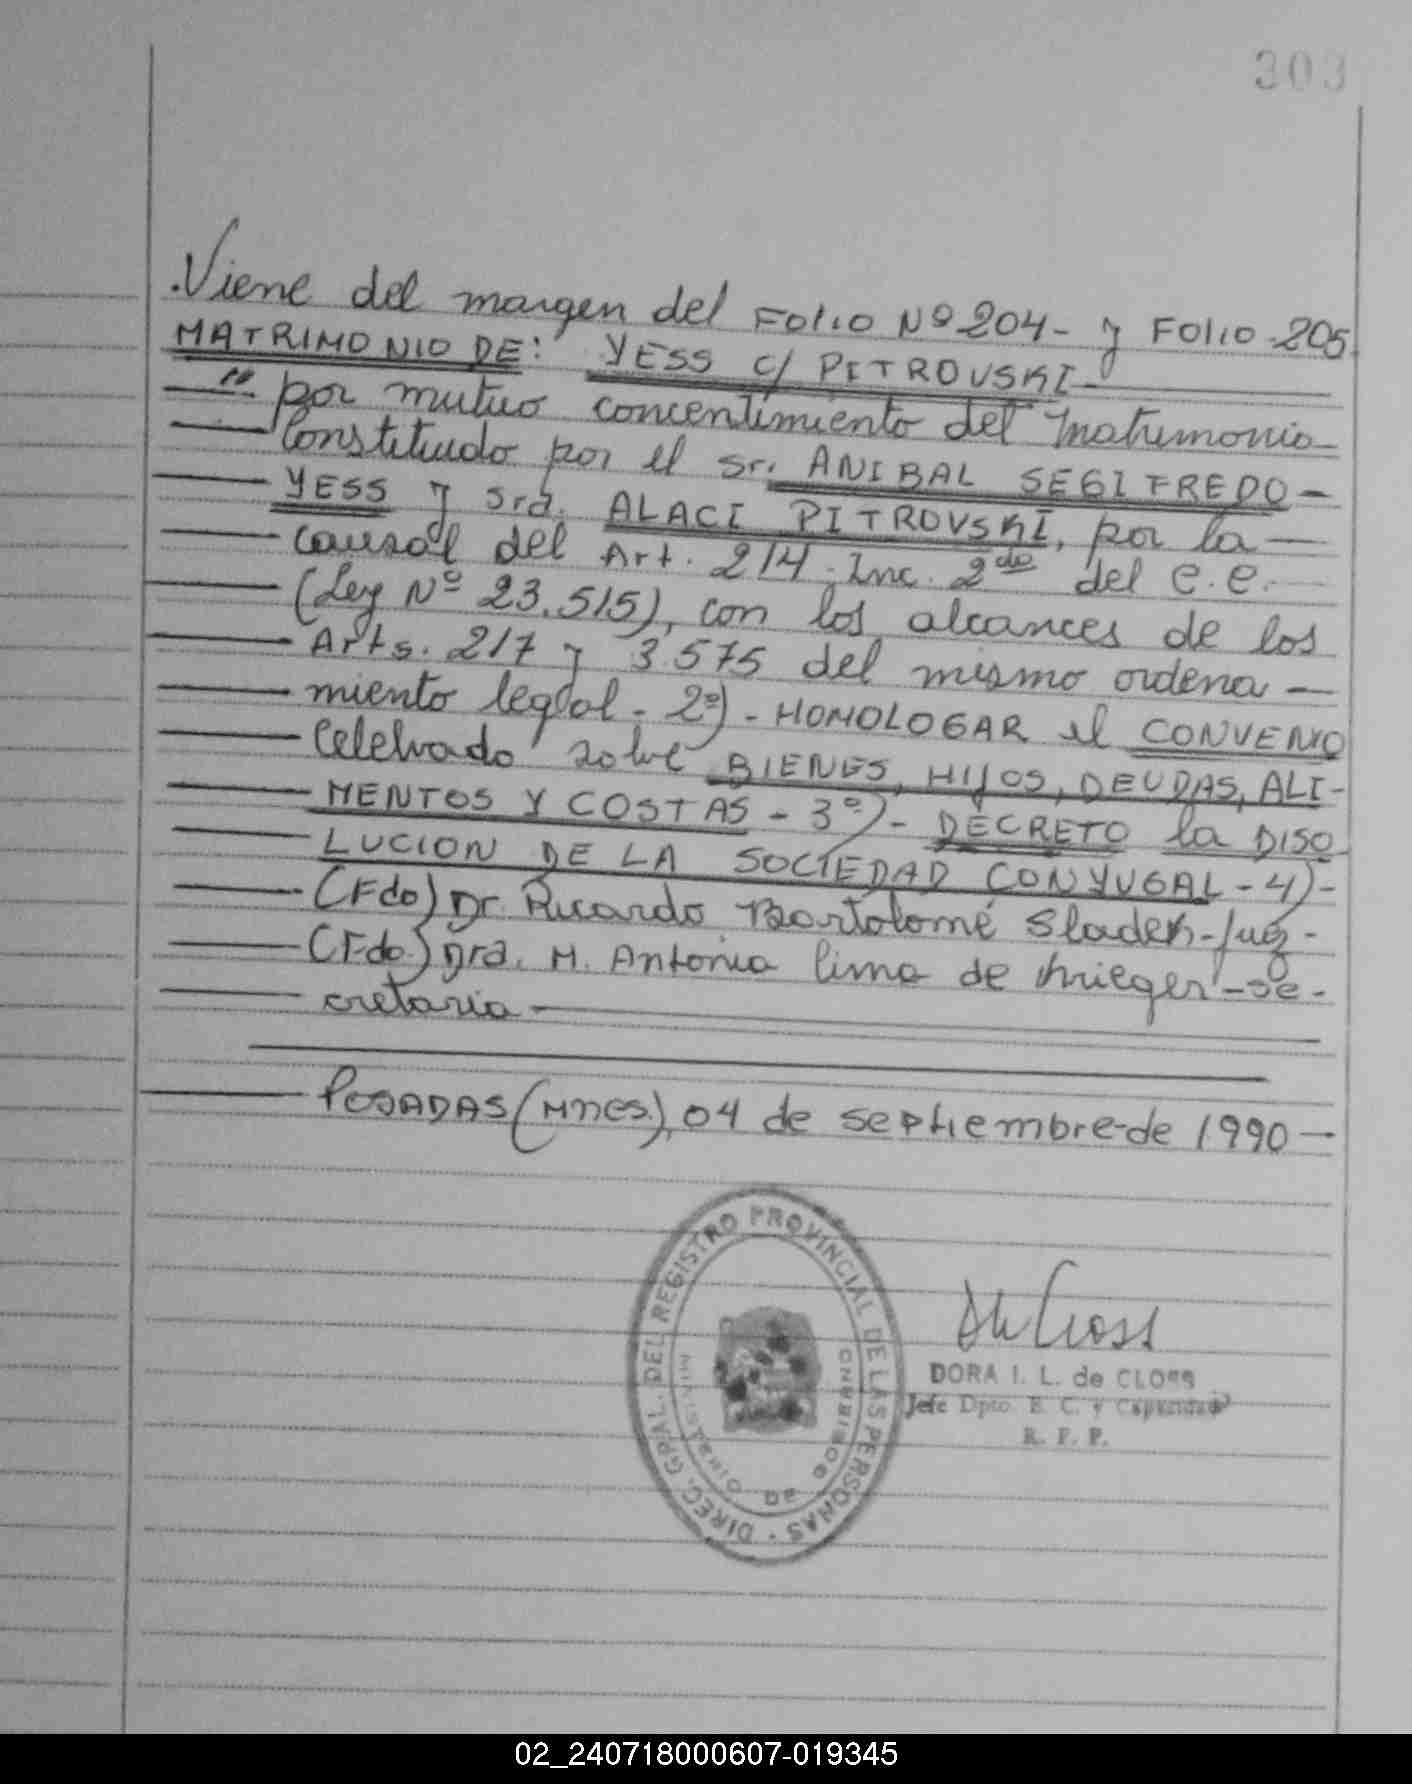 303
.Viene del margen del FOLIO Nº 204- y FOLIO-205
MATRIMONIO DE: YESS C/ PITROVSKI-
" por mutuo concentimiento del Matrimonio
Constituido por el Sr. ANIBAL SEGIFREDO-
YESS y Srd. ALACI PITROVSKI, por la
causal del Art. 214. Inc. 2do del C.C.
(Ley Nº 23.515), con los alcances de los
Arts. 217 y 3.575 del mismo ordena-
miento legal- 2º)- HOMOLOGAR el CONVENIO
Celebrado sobre BIENES, HIJOS, DEUDAS, ALI-
MENTOS Y COSTAS- 3º)- DECRETO la DISO
LUCION DE LA SOCIEDAD CONYUGAL- 4)-
(Fdo) Dr. Ricardo Bartolomé Sladek-Juez-
(Fdo.) Dra. M. Antonia Lima de Krieger-se-
cretaria-
POSADAS (Mnes.), 04 de septiembre-de 1990-
DIREC. GRAL. DEL REGISTRO PROVINCIAL DE LAS PERSONAS
MINISTERIO DE GOBIERNO
DORA I. L. de CLOSS
Jefe Dpto. E. C. y Capacidad
R. P. P.
02_240718000607-019345